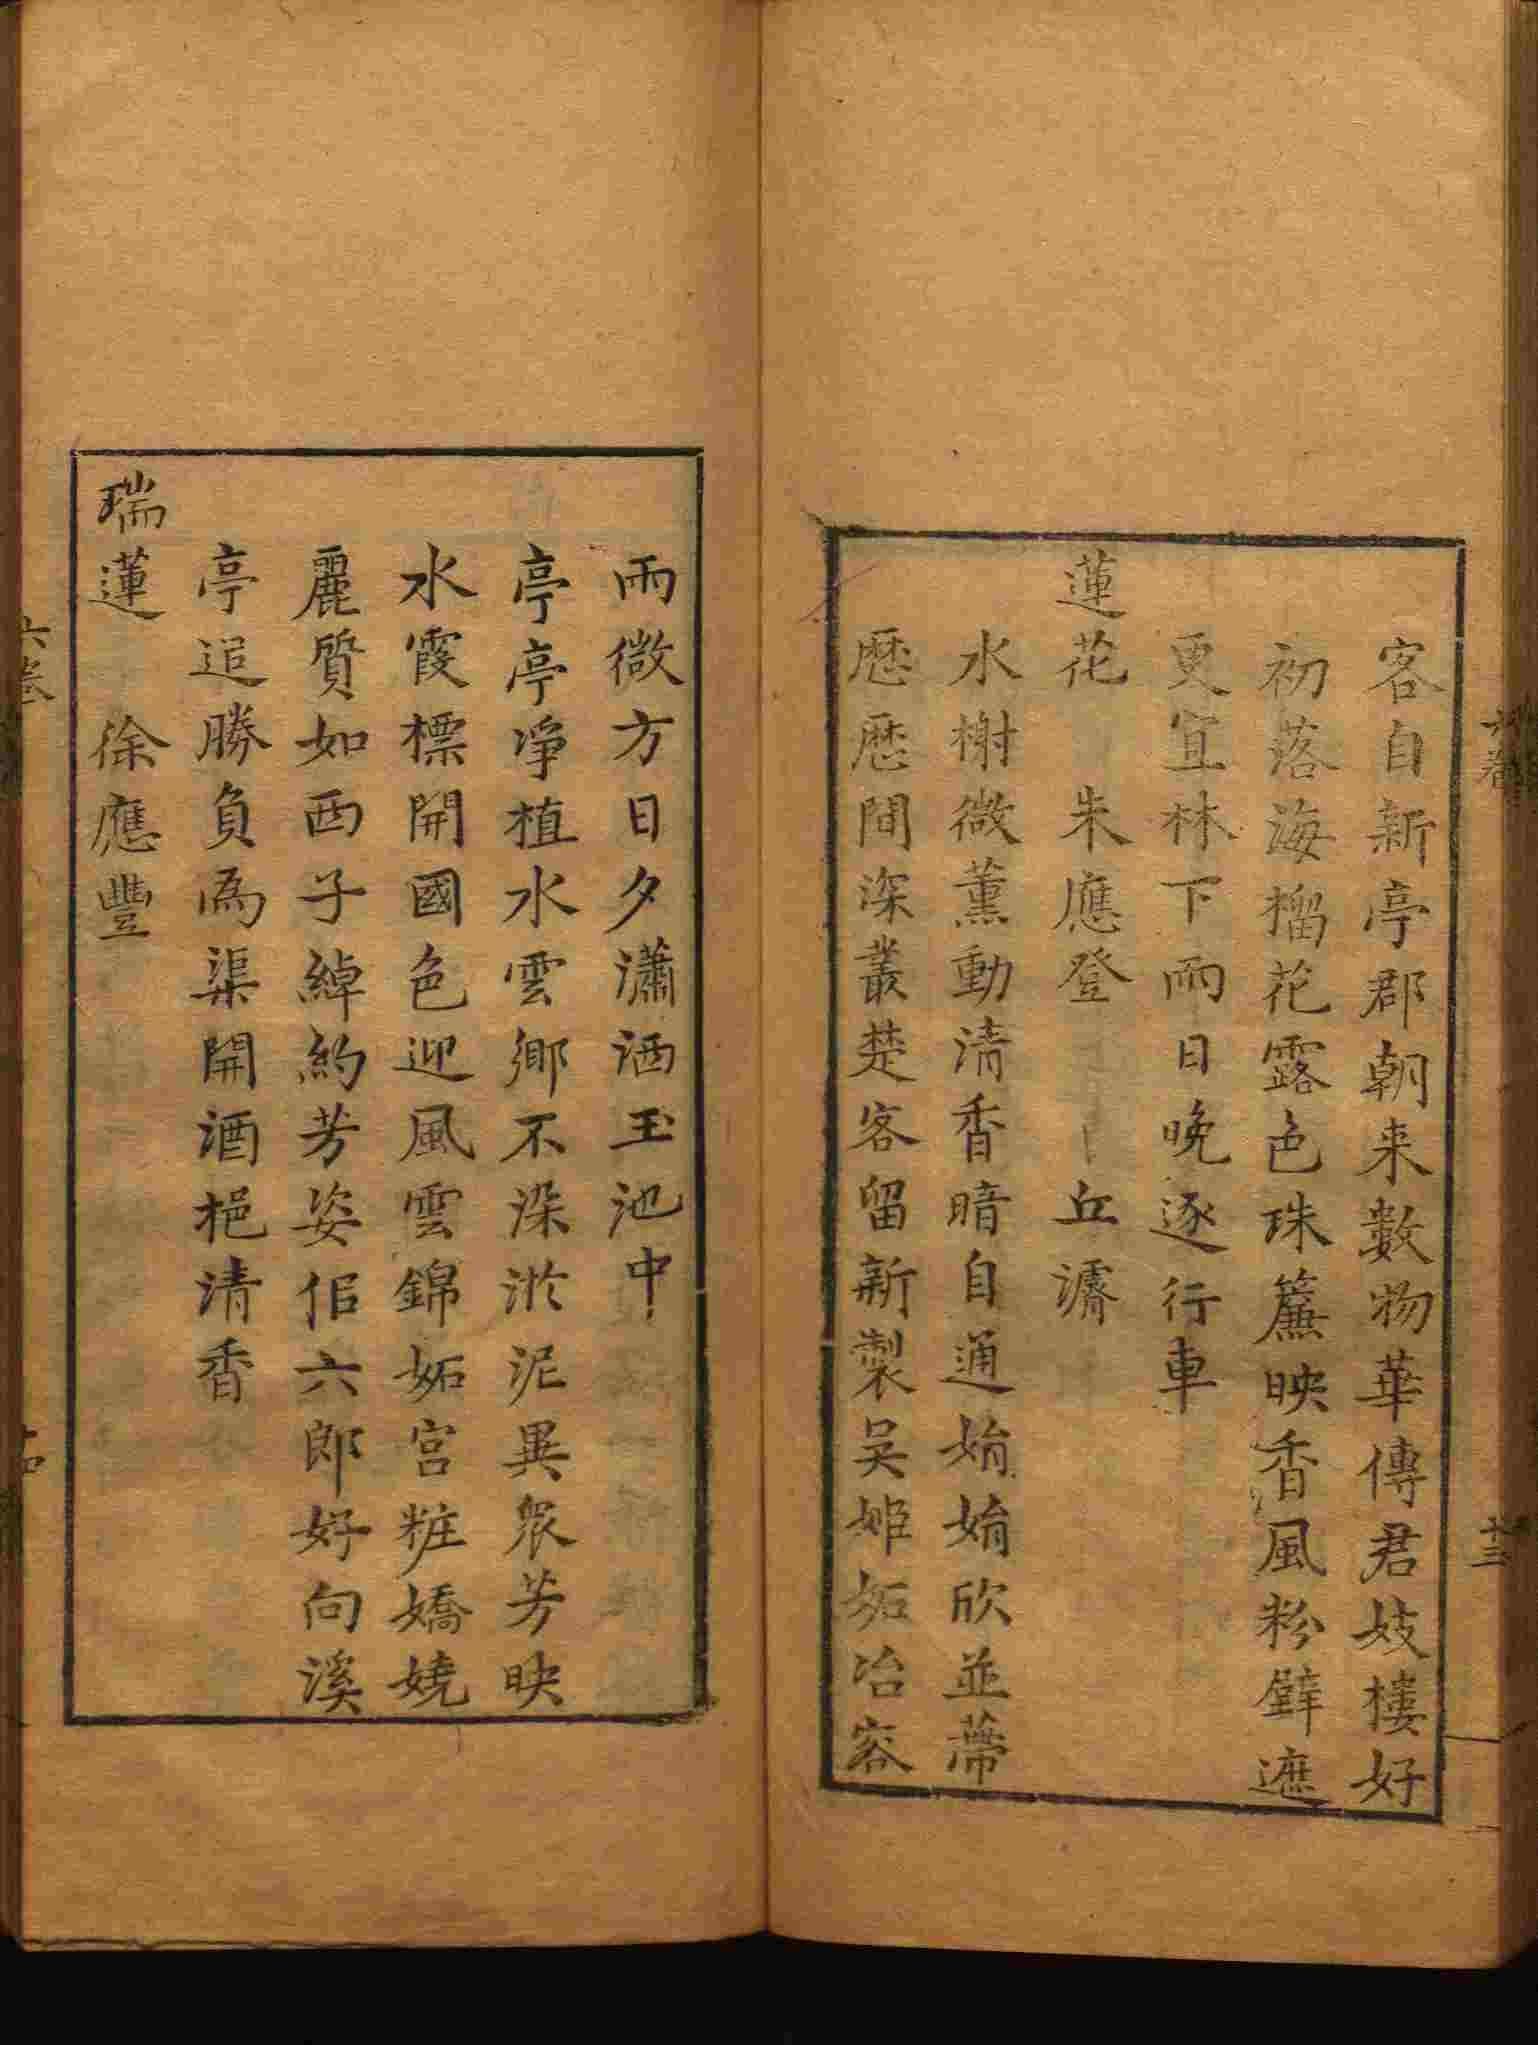 客自新亭郡朝来數物華傳君妓樓好
初落海榴花露色珠簾映香風粉壁遮
更宜林下雨日晚逐行車
蓮花 朱應登 丘濬
水榭微薰動清香暗自通娟娟欣並蔕
歷歷間深叢楚客留新製吴姬妬冶容
六卷 十三
雨微方日夕瀟洒玉池中
亭亭凈植水雲鄉不染淤泥異衆芳映
水霞標開國色迎風雲錦妬宫粧嬌嬈
麗質如西子綽約芳姿佀六郎好向溪
亭追勝負為渠開酒挹清香
瑞蓮 徐應豐
六卷 十四